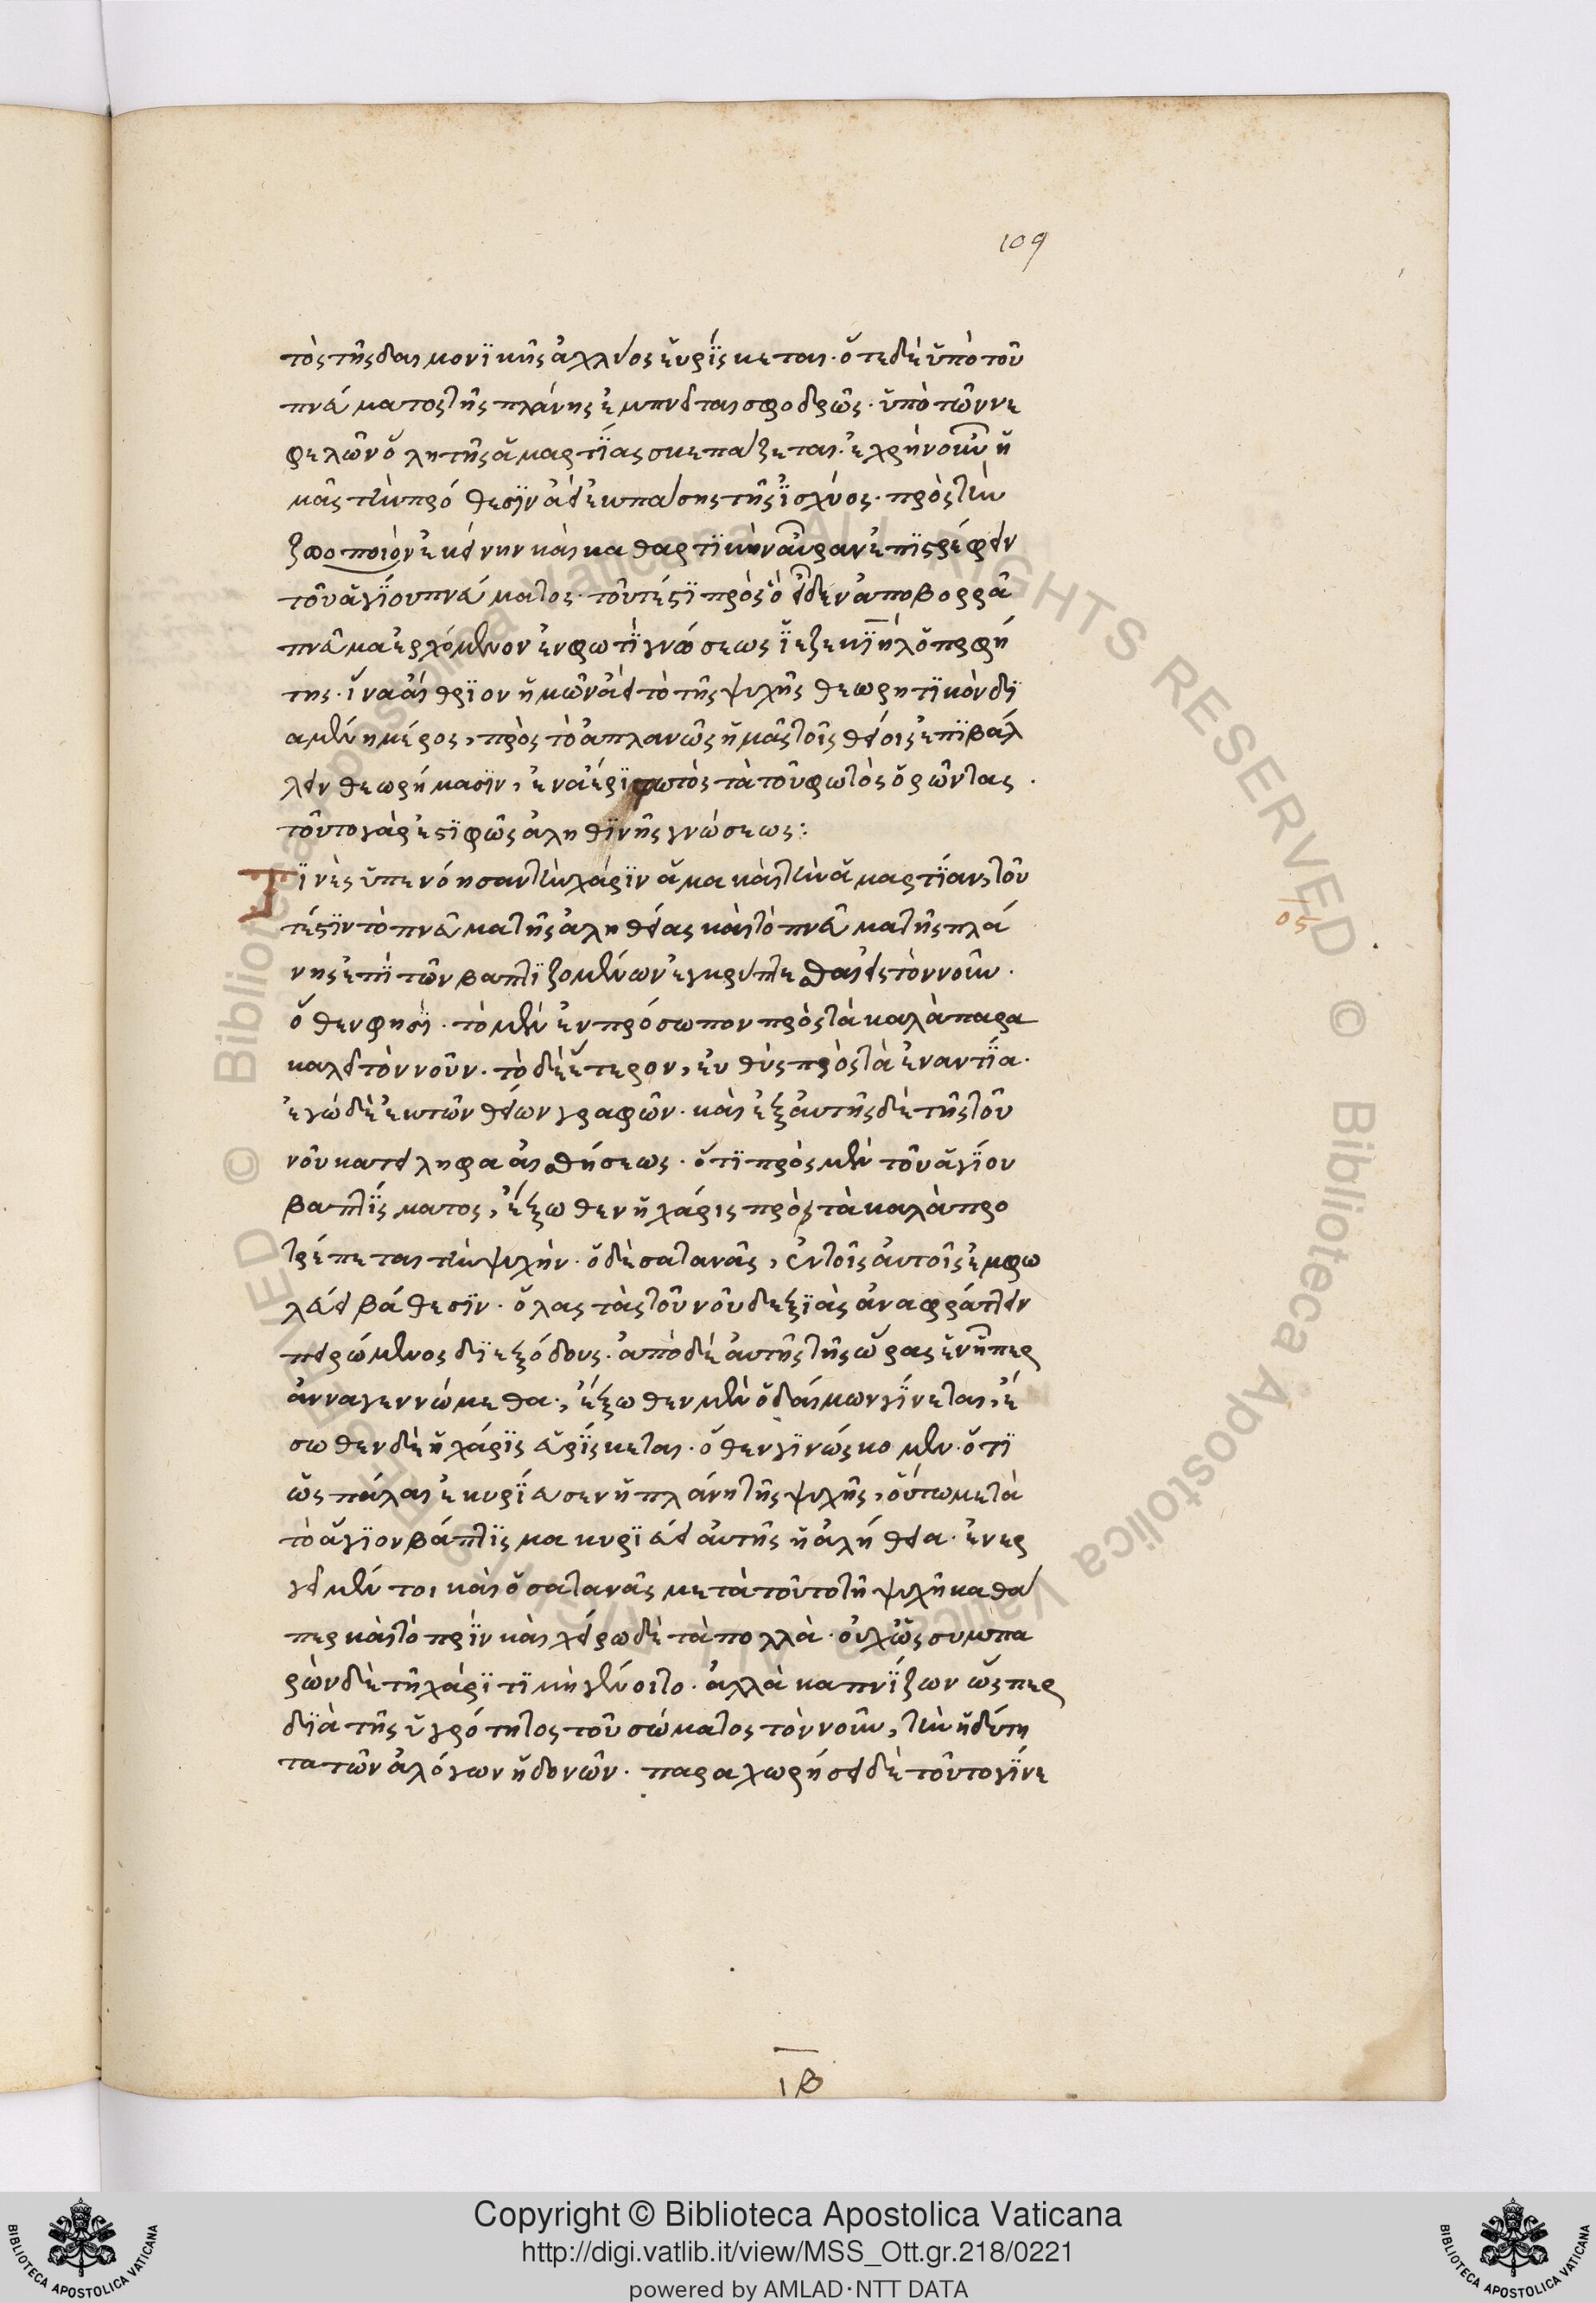 109
τὸς τῆς δαιμονϊκῆς ἀχλύος εὑρΐσκεται· ὅτε δὲ ὑπὸ τοῦ
πνεύματος τῆς πλάνης ἐμπνεῖται σφοδρῶς· ὑπὸ τῶν νε
φελῶν ὅλη τῆς ἁμαρτΐας σκεπάζεται. ἐχρῆν οὖν ἡ
μᾶς τὴν πρόθεσϊν ἀεὶ ἐκ πάσης τῆς ϊσχύος· πρὸς τὴν
ζωοποιὸν ἐκείνην καὶ καθαρτϊκὴν αὖραν ἐπϊστρέφειν
τοῦ ἁγΐου πνεύματος· τοῦτέστϊ πρὸς ὃ εἶδεν ἀπο βορρᾶ
πνεῦμα ἐρχόμενον ἐν φωτῒ γνώσεως ϊεζεκϊὴλ ὁ προφή
της· ἵνα αἴθρϊον ἡμῶν ἀεὶ τὸ τῆς ψυχῆς θεωρητϊκὸν δϊ
αμένη μέρος, πρὸς τὸ ἀπλανῶς ἡμᾶς τοῖς θείοις ἐπϊβάλ
λειν θεωρήμασϊν, ἐν ἀέρϊ φωτὸς τὰ τοῦ φωτὸς ὁρῶντας.
τοῦτο γάρ ἐστϊ φῶς ἀληθϊνῆς γνώσεως:
Τϊνὲς ὑπενόησαν τὴν χάρϊν ἅμα καὶ τὴν ἁμαρτΐαν, τοῦ
τέστϊν τὸ πνεῦμα τῆς ἀληθείας καὶ τὸ πνεῦμα τῆς πλά
νης ἐπῒ τῶν βαπτϊζομένων ἐγκρύπτεσθαι εἰς τὸν νοῦν.
ὅθεν φησῒ· τὸ μὲν ἓν πρόσωπον πρὸς τὰ καλὰ παρα
καλεῖ τὸν νοῦν. τὸ δὲ ἕτερον, εὐθὺς πρὸς τὰ ἐναντΐα.
ἐγὼ δὲ ἐκ τῶν θείων γραφῶν. καὶ ἐξ αὐτῆς δὲ τῆς τοῦ
νοῦ κατείληφα αἰσθήσεως. ὅτϊ πρὸς μὲν τοῦ ἁγΐου
βαπτΐσματος, ἔξωθεν ἡ χάρις πρὸς τὰ καλὰ προ
τρέπεται τὴν ψυχὴν. ὁ δὲ σατανᾶς, ἐν τοῖς αὐτοῖς ἐμφω
λεύει βάθεσϊν. ὅλας τὰς τοῦ νοῦ δεξϊὰς ἀναφράττειν
πειρώμενος δϊεξόδους. ἀπὸ δὲ αὐτῆς τῆς ὥρας ἐν ᾗπερ
ἀνναγεννώμεθα, ἔξωθεν μὲν ὁ δαίμων γΐνεται, ἔ
σωθεν δὲ ἡ χάρϊς εὑρΐσκεται. ὅθεν γϊνώσκομεν. ὅτϊ
ὡς πάλαι ἐκυρΐευσεν ἡ πλάνη τῆς ψυχῆς, οὕτω μετὰ
τὸ ἅγϊον βάπτϊσμα κυρϊεύει αὐτῆς ἡ ἀλήθεια. ἐνερ
γεῖ μέν τοι καὶ ὁ σατανᾶς μετὰ τοῦτο τῇ ψυχῇ καθά
περ καὶ τὸ πρῒν καὶ χείρω δὲ τὰ πολλὰ. οὐχ ὡς συμπα
ρὼν δὲ τῇ χάρϊτϊ μὴ γένοιτο. ἀλλὰ καπνΐζων ὥσπερ
δϊὰ τῆς ὑγρότητος τοῦ σώματος τὸν νοῦν, τὴν ἡδύτη
τα τῶν ἀλόγων ἡδονῶν. παραχωρήσει δὲ τοῦτο γΐνε
ιβ
Copyright © Biblioteca Apostolica Vaticana
http://digi.vatlib.it/view/MSS_Ott.gr.218/0221
powered by AMLAD·NTT DATA